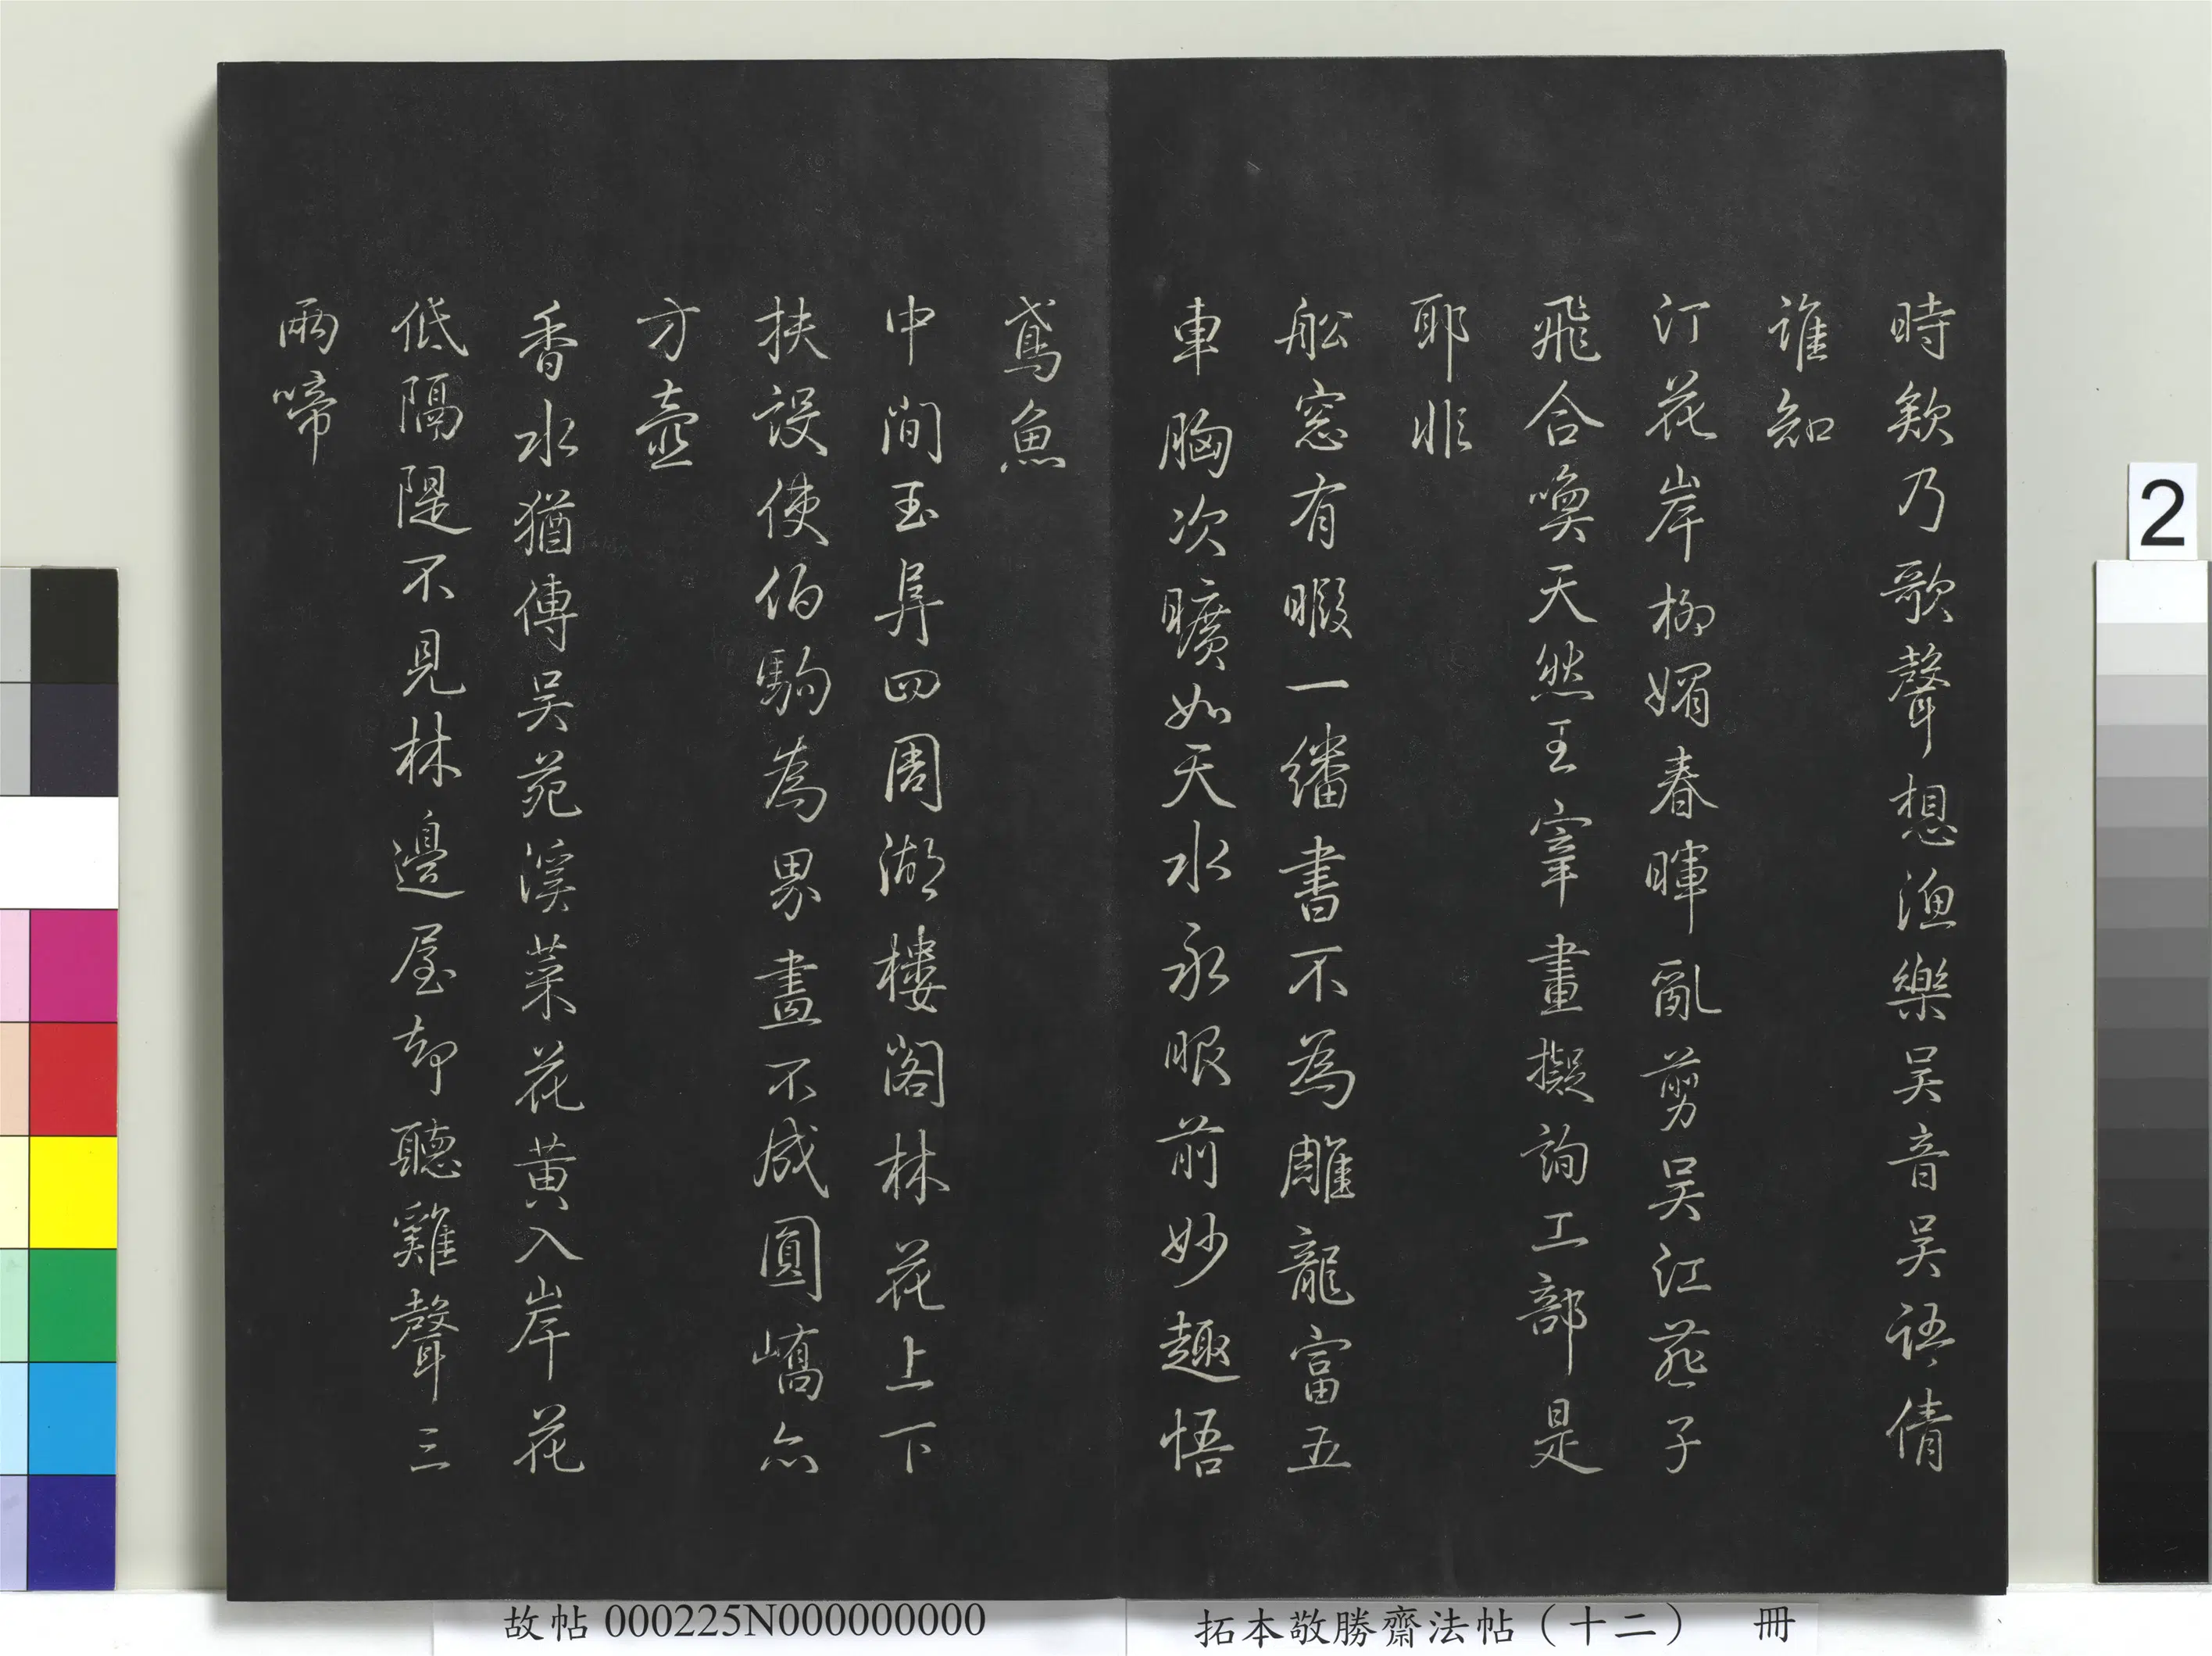 時欸乃歌聲想漁樂吳音吳語倩
誰知
汀花岸柳媚春暉亂剪吳江燕子
飛合喚天然王宰畫擬詢工部是
耶非
舩窓有暇一繙書不為雕龍富五
車胸次曠如天水永眼前妙趣悟
鳶魚
中間玉阜四周湖樓閣林花上下
扶設使伯駒為界畫不成圓嶠亦
方壺
香水猶傳吳苑溪菜花黃入岸花
低隔隄不見林邊屋却聽雞聲三
兩啼
故帖000225N000000000
拓本敬勝齋法帖（十二） 冊
2